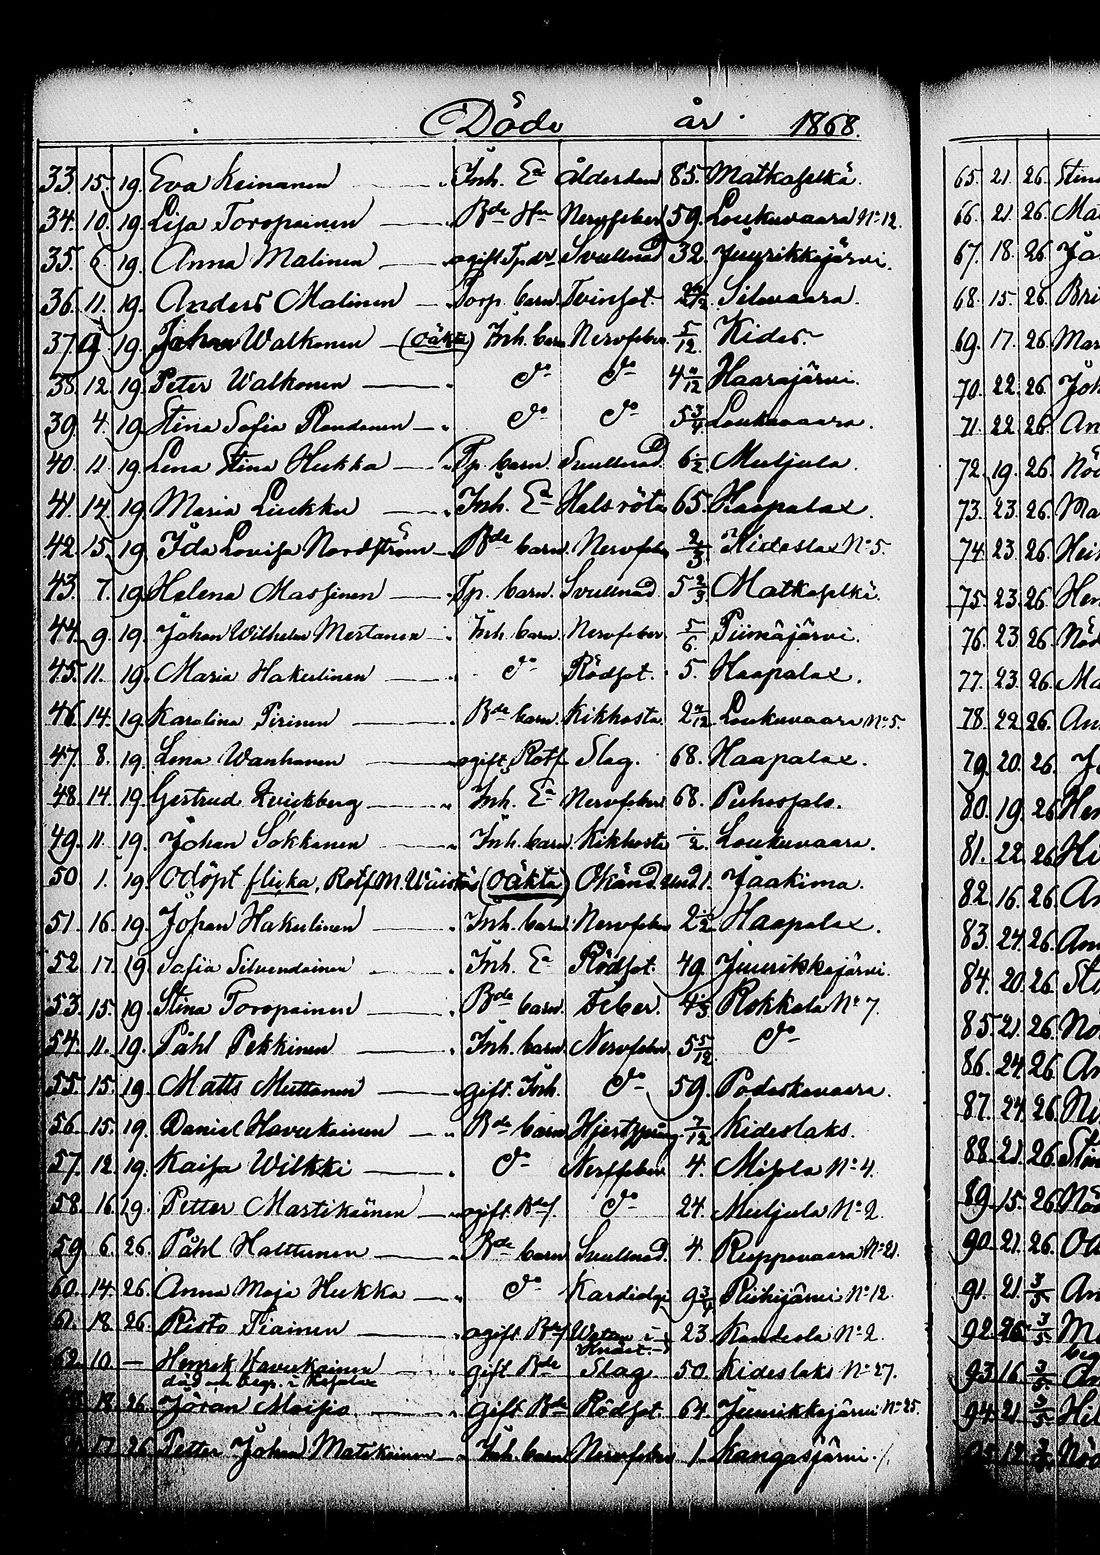 Döde år 1868.
33. 15. 19. Eva Keinanen Inh. Ea Ålderdom 85. Matkaselkä.
34. 10. 19. Lisa Toropainen Bde Hu Nervfeber 59. Loukuvaara No 12.
35. 6. 19. Anna Malinen ogift Svullnad 32. Juurikkajärvi.
36. 11. 19. Anders Malinen Torp. barn Tvinsot Silovaara.
37. 9. 19. Johan Walkonen (Oäkta) Inh. barn Nervfeber 5/12 Kides.
38. 12. 19. Peter Walkonen do do Haarajärvi.
39. 4. 19. Stina Sofia Rondanen do do 5 3/4 Loukuvaara.
40. 11. 19. Lena Stina Hukka Tp. barn Svullnad 6 1/2 Muljula.
41. 14. 19. Maria Liukku Inh. Ea Halsröta 65. Haapalax.
42. 15. 19. Ida Lovisa Nordström Bde barn. Nervfeb. 2/3 Kideslax No 5.
43. 7. 19. Helena Massinen Tp. barn. Svullnad. 5 2/3 Matkaselkä.
44. 9. 19. Johan Wilhelm Mertanen Inh. barn. Nervfeber 5/6. Piimäjärvi.
45. 11. 19. Maria Hakulinen do Rödsot. 5. Haapalax.
46. 14. 19. Karolina Pirinen Bde barn. Kikhosta. Loukuvaara No 5.
47. 8. 19. Lena Wanhanen ogift, Rotf. Slag. 68. Haapalax.
48. 14. 19. Gertrud Quickberg Inh. Ea Nervfeber 68. Puhos
49. 11. 19. Johan Sokkanen Inh. barn. Kikhosta 1/2. Loukuvaara.
50. 1. 19. Odöpt flicka, Rotf. M. (Oäkta) Okänd. und. 1. Jaakima.
51. 16. 19. Johan Hakulinen Inh. barn. Nervfeber 2 1/2 Haapalax.
52. 17. 19. Sofia Silvendainen Inh. Ea Rödsot. 49. Juurikkajärvi.
53. 15. 19. Stina Toropainen Bde barn. Feber. Rokkala No 7.
54. 11. 19. Påhl Pekkinen Inh. barn. Nervfeber 5 5/12 do
55. 15. 19. Matts Muttonen gift. Inh. do 59. Potoskavaara.
56. 15. 19. Daniel Havukainen Bde barn 7/12 Kideslaks.
57. 12. 19. Kaisa Wilkki do Nervfeber 4. Misola No 4.
58. 16. 19. Petter Martikainen ogift. Bdes. do 24. Muljula No 2.
59. 6. 26. Påhl Halttunen Bde barn. Svullnad. 4. Ruppovaara No 21.
60. 14. 26. Anna Maja Hukka do Kardialgi 9 3/4 Riihijärvi No 12.
61. 18. 26. Risto Tiainen ogift Bdes. Watten i 23. Kandsola No 2.
62. 10. — Henrik Havukainen gift. Bde Slag 50. Kideslaks No 27.
död och begr. i
18. 26. Jöran Moisio Gift. Bde Rödsot. 67. Juurikkajärvi No 25.
17. 26. Petter Johan Matikainen Inh. barn. Nervfeber 1. Kangasjärvi.
65. 21. 26.
66. 21. 26.
67. 18. 26.
68. 15. 26.
69. 17. 26.
70. 22. 26.
71. 22. 26.
72. 19. 26.
73. 23. 26.
74. 23. 26.
75. 23. 26.
76. 23. 26.
77. 23. 26.
78. 22. 26.
79. 20. 26.
80. 19. 26.
81. 22. 26.
82. 16. 26.
83. 24. 26.
84. 20. 26.
85. 21. 26.
86. 24. 26.
87. 24. 26.
88. 21. 26.
89. 15. 26.
90. 21. 26.
91. 21. 3/5
92. 26. 3/5
93. 16. 3/5
94. 21. 3/5